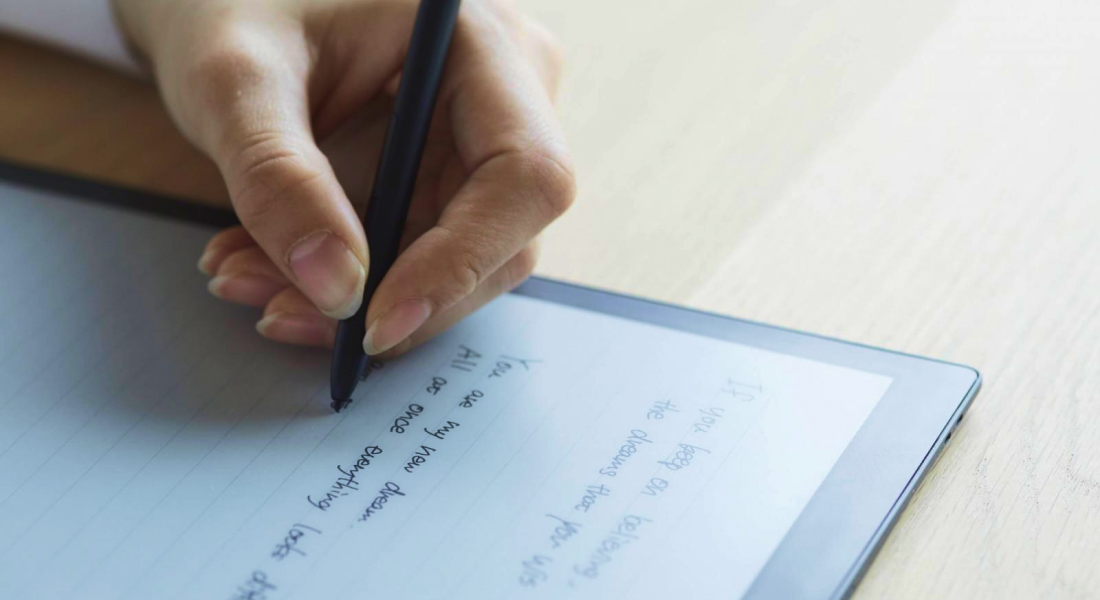 If you keep on believing,
the dreams that you wis
You are my new dream
All at once everything looks dif